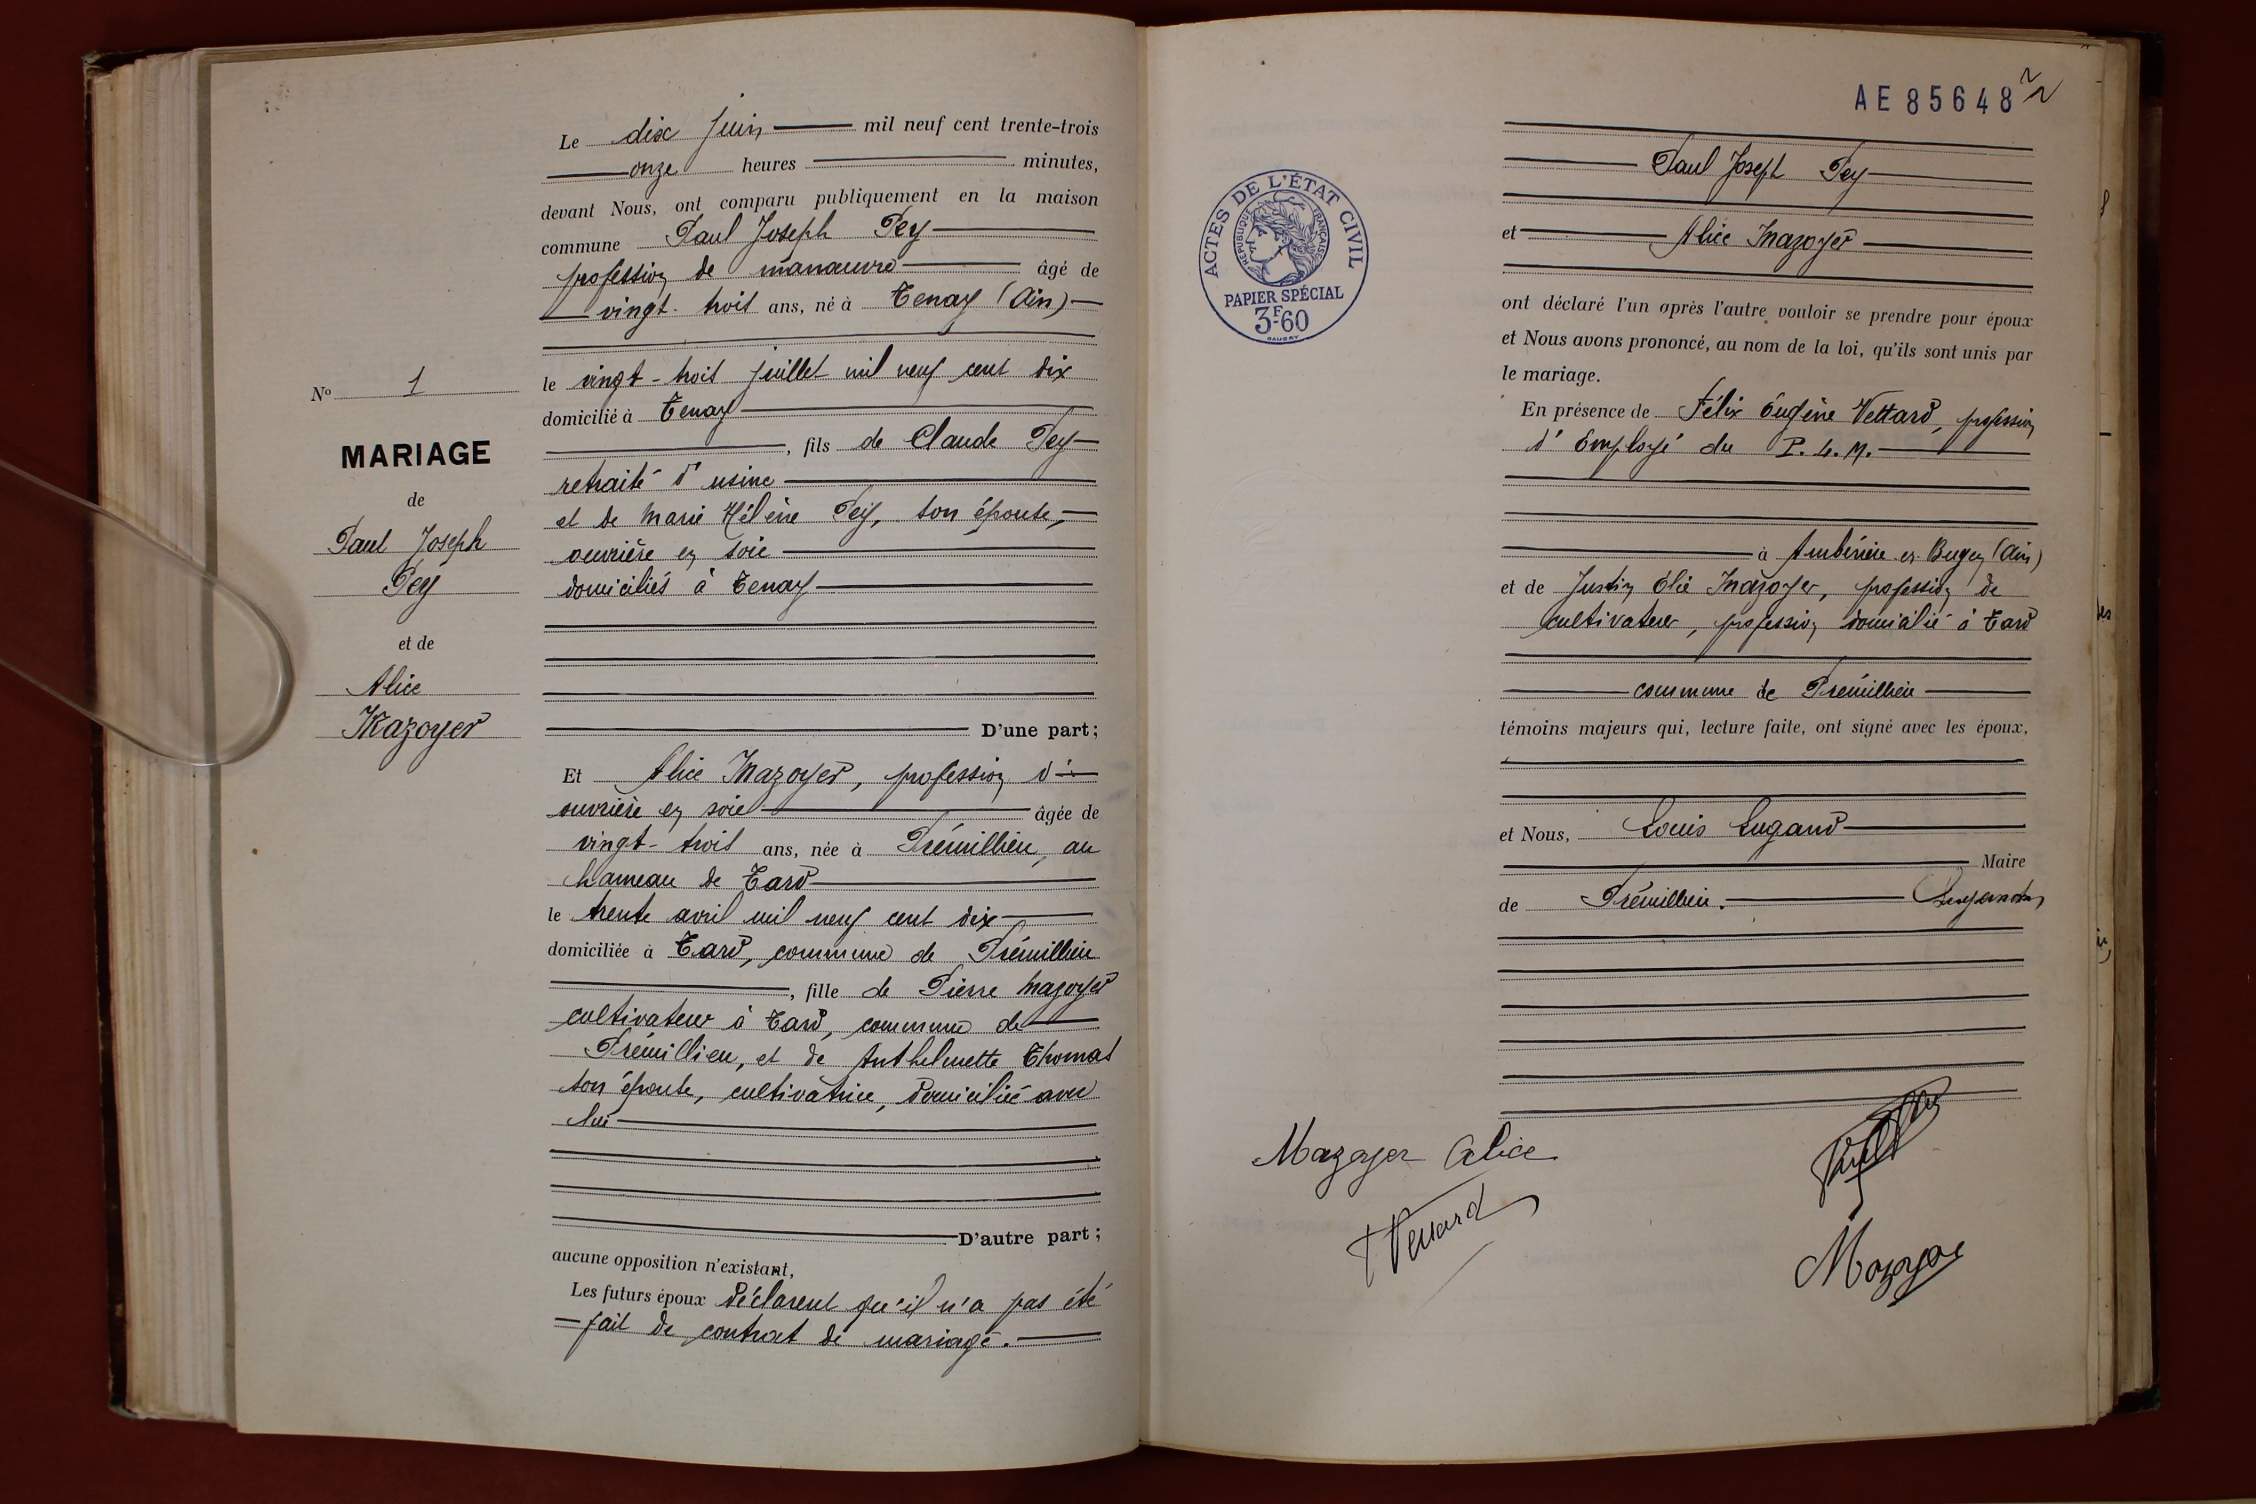 N° 1
MARIAGE
de
Paul Joseph
Pey
et de
Alice
Mazoyer
Le dix juin mil neuf cent trente-trois
onze heures minutes,
devant Nous, ont comparu publiquement en la maison
commune Paul Joseph Pey
profession de manœuvre âgé de
vingt-trois ans, né à Tenay (Ain)
le vingt-trois juillet mil neuf cent dix
domicilié à Tenay
, fils de Claude Pey
retraité d'usine
et de Marie Hélène Pey, son épouse,
ouvrière en soie
domiciliés à Tenay
D'une part;
Et Alice Mazoyer, profession d'
ouvrière en soie âgée de
vingt-trois ans, née à Prémillieu, au
hameau de Tard
le trente avril mil neuf cent dix
domiciliée à Tard, commune de Prémillieu
, fille de Pierre Mazoyer
cultivateur à Tard, commune de
Prémillieu, et de Anthelmette Thomas
son épouse, cultivatrice, domiciliée avec
lui
D'autre part;
aucune opposition n'existant,
Les futurs époux déclarent qu'il n'a pas été
fait de contrat de mariage.
AE 85648
2
ACTES DE L'ÉTAT CIVIL
REPUBLIQUE FRANÇAISE
PAPIER SPÉCIAL
3F-60
Paul Joseph Pey
et Alice Mazoyer
ont déclaré l'un après l'autre vouloir se prendre pour époux
et Nous avons prononcé, au nom de la loi, qu'ils sont unis par
le mariage.
En présence de Félix Eugène Vettard, profession
d'Employé du P.L.M.
à Ambérieu en Bugey (Ain)
et de Justin Elie Mazoyer, profession de
cultivateur, profession domicilié à Tard
commune de Prémillieu
témoins majeurs qui, lecture faite, ont signé avec les époux,
et Nous, Louis Lugand
Maire
de Prémillieu.
Mazoyer Alice
Vettard
Mazoyer